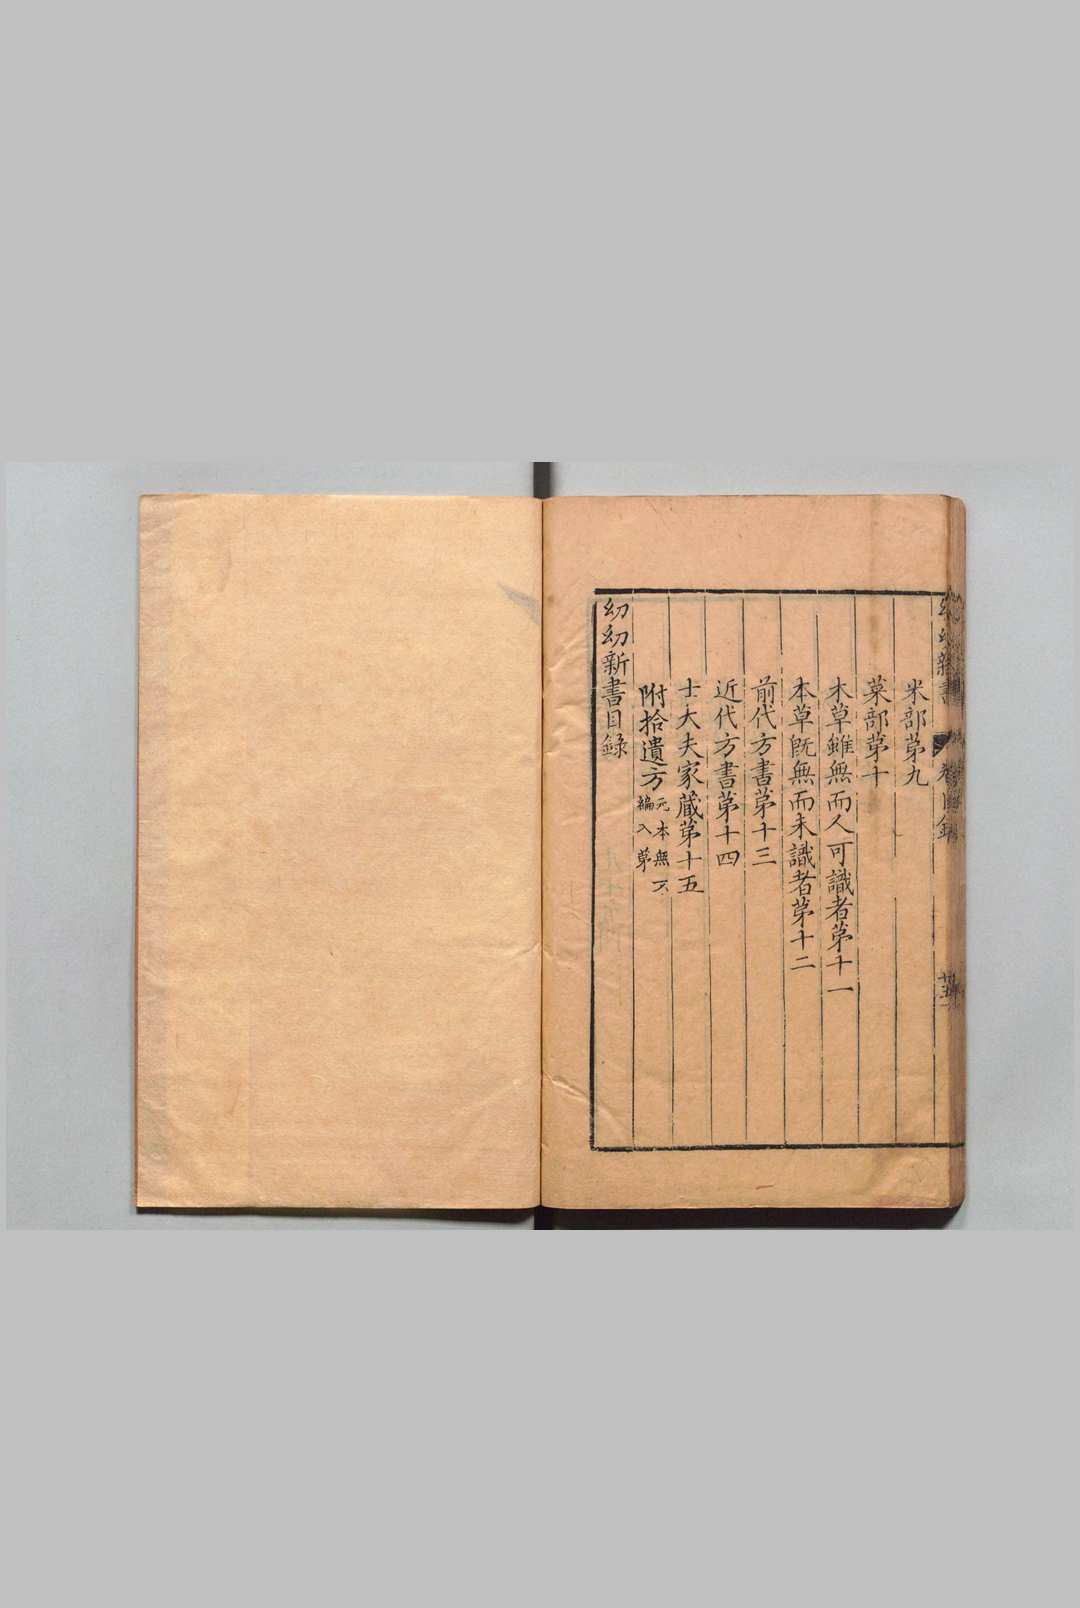 米部苐九
菜部苐十
本草雖無而人可識者苐十一
本草既無而未識者苐十二
前代方書苐十三
近代方書苐十四
士大夫家蔵苐十五
附拾遺方元本無不
編入苐
幼幼新書目録